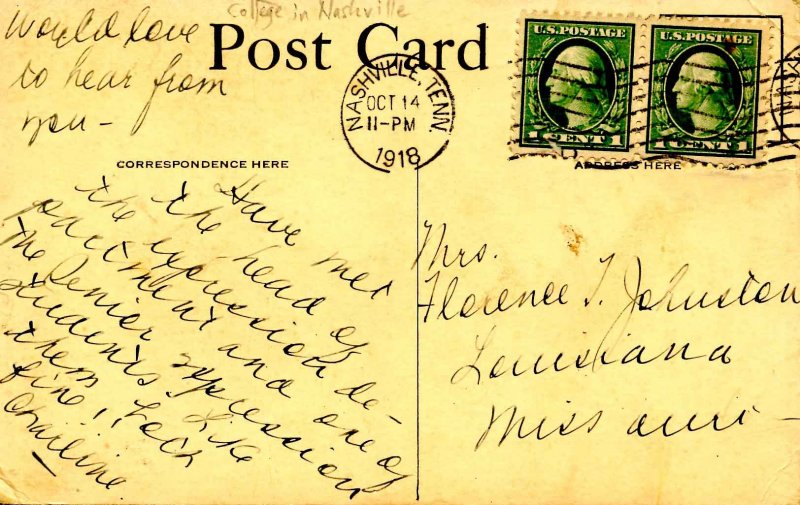 College in Nashville
Would love
to hear from
you –
Post Card
NASHVILLE, TENN.
OCT 14
11-PM
1918
U.S. POSTAGE
1 CENT 1
U.S. POSTAGE
1 CENT 1
CORRESPONDENCE HERE
ADDRESS HERE
Have met
the head of
the expression de-
partment and one of
the Senior expression
students. Like
them
fine,
Mrs.
Florence T. Johnston
Louisiana
Missouri –